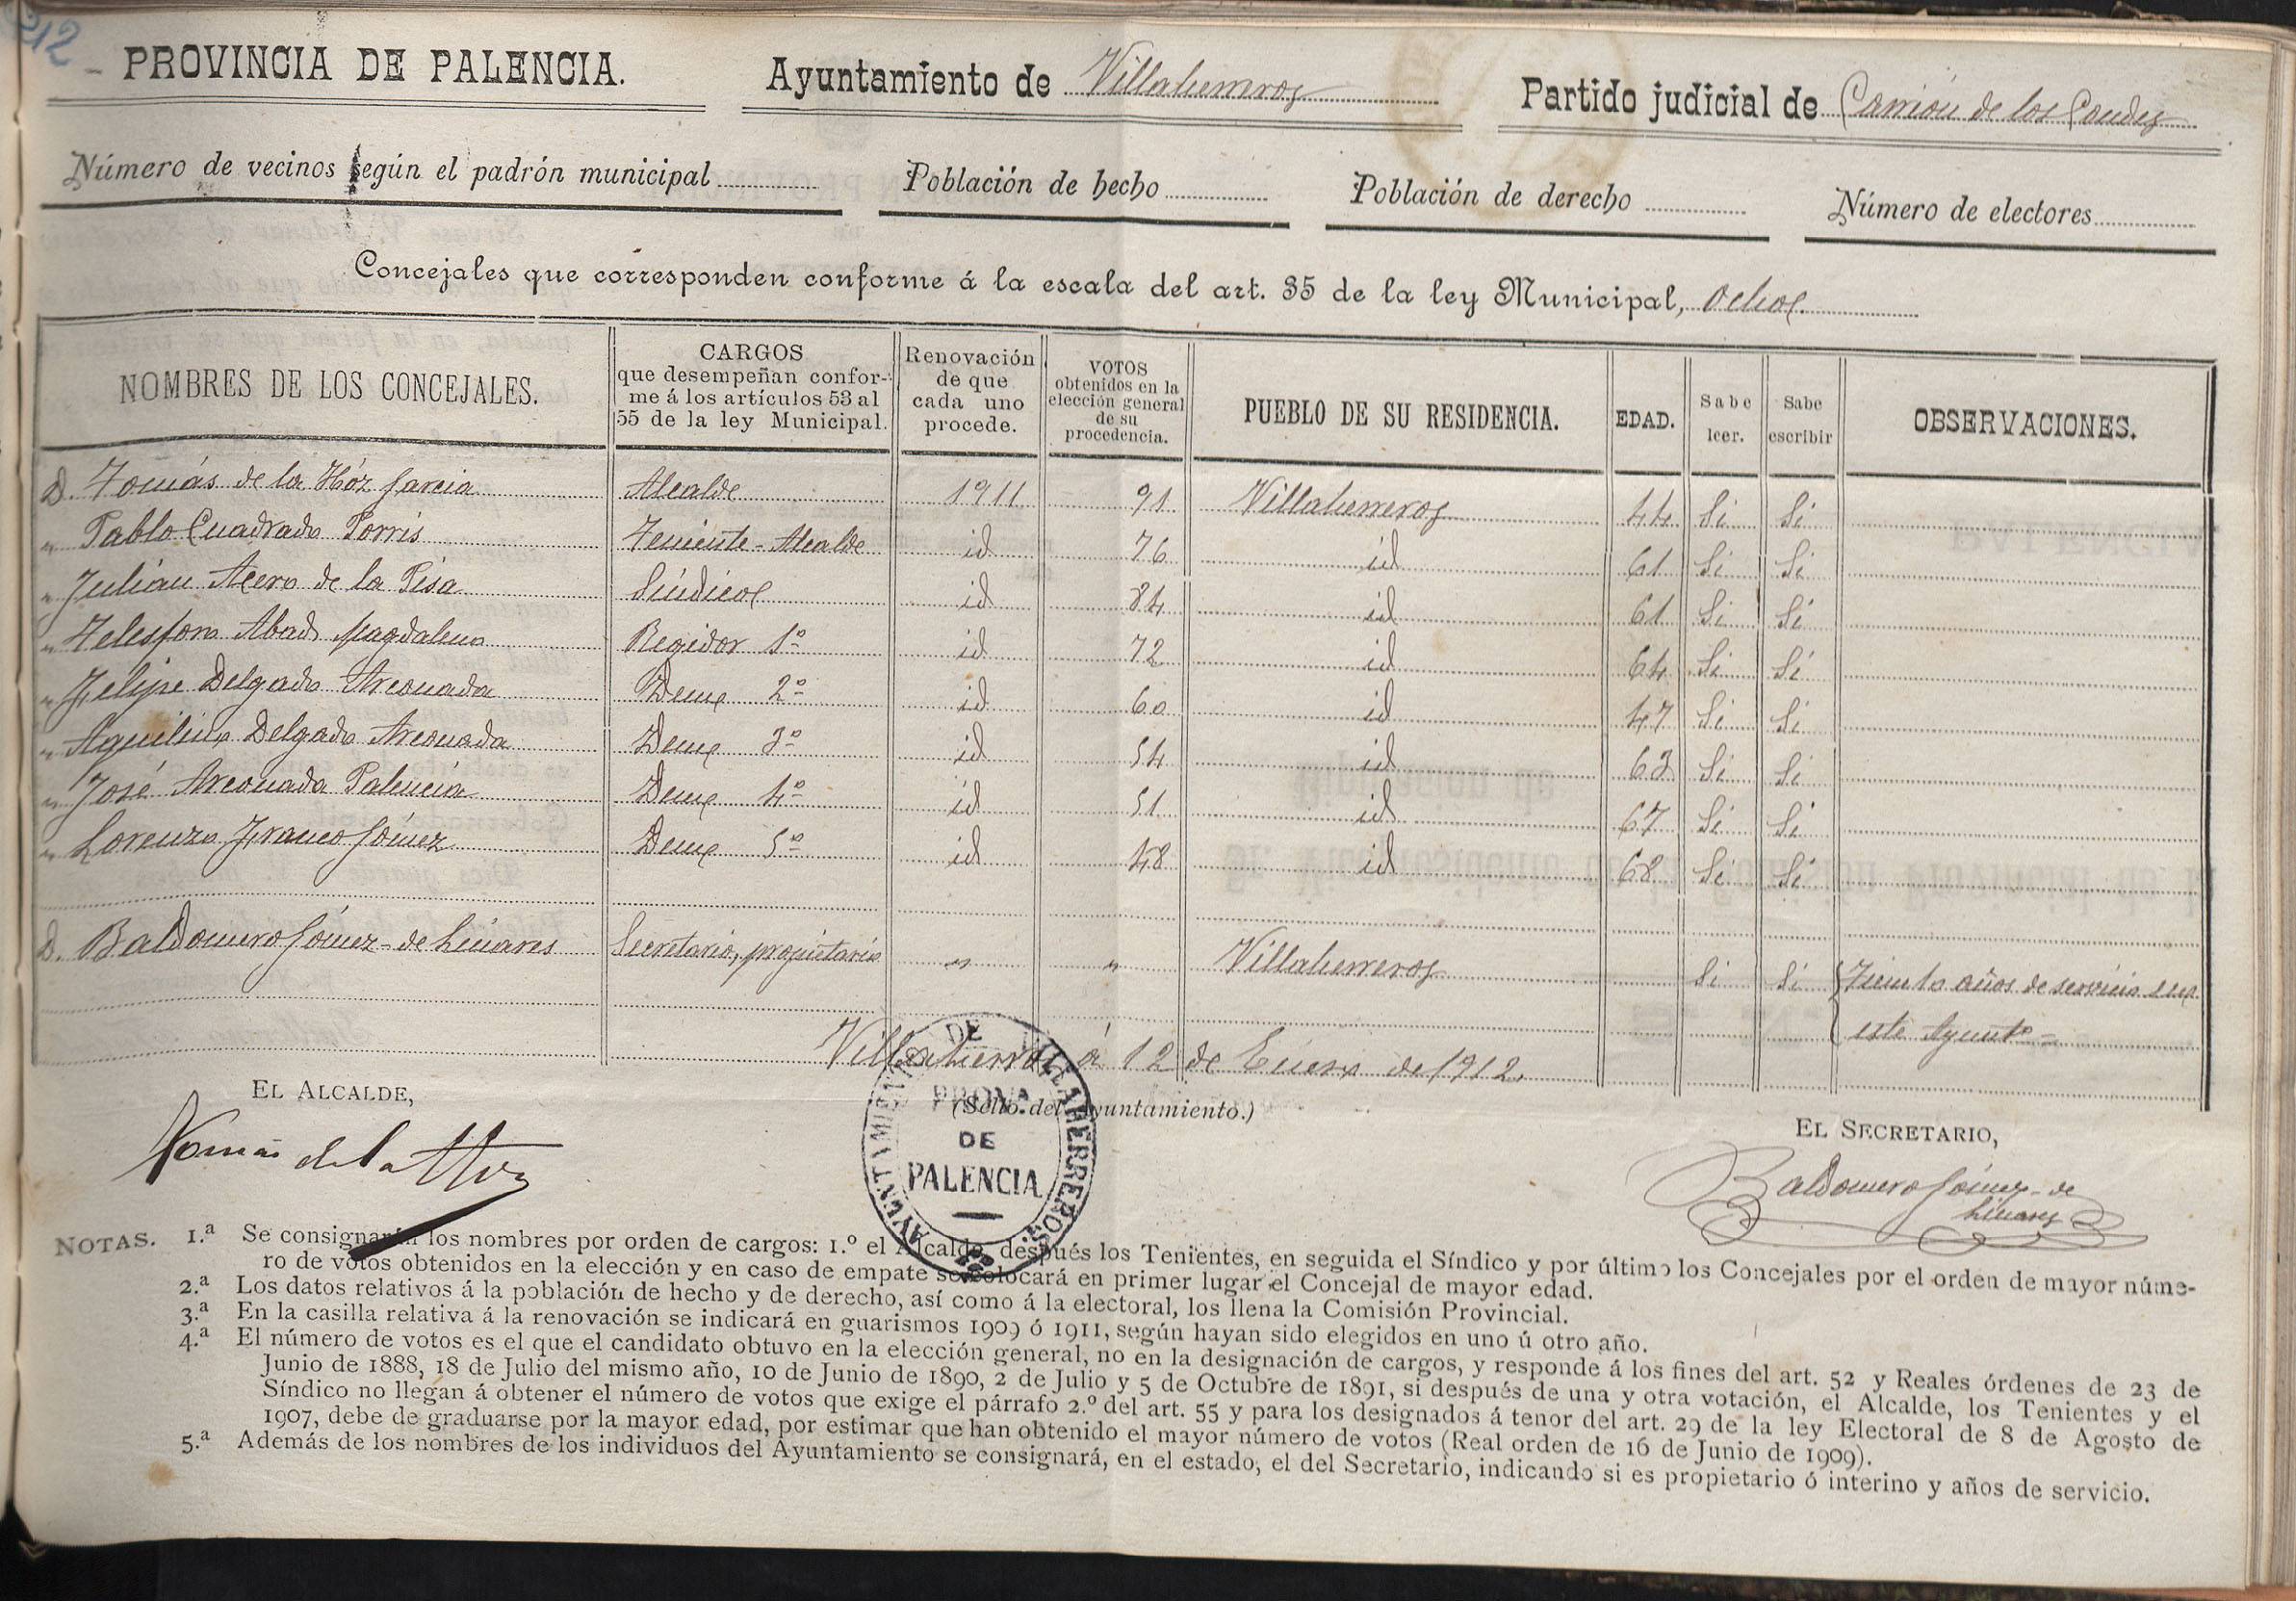 212
PROVINCIA DE PALENCIA. Ayuntamiento de Villaherreros Partido judicial de Carrión de los Condes
Número de vecinos según el padrón municipal Población de hecho Población de derecho Número de electores
Concejales que corresponden conforme á la escala del art. 35 de la ley Municipal, ocho.
NOMBRES DE LOS CONCEJALES.
CARGOS
que desempeñan confor-
me á los artículos 53 al
55 de la ley Municipal.
Renovación
de que
cada uno
procede.
VOTOS
obtenidos en la
elección general
de su
procedencia.
PUEBLO DE SU RESIDENCIA.
EDAD.
Sabe
leer.
Sabe
escribir
OBSERVACIONES.
D. Tomás de la Hóz Garcia Alcalde 1911 91 Villaherreros 44 Si Si
" Pablo Cuadrado Torris Teniente-Alcalde id 76 id 61 Si Si
" Julián Acero de la Pisa Síndico id 84 id 61 Si Si
" Telesforo Abad Magdaleno Regidor 1º id 72 id 64 Si Si
" Felipe Delgado Arconada Deme 2º id 60 id 47 Si Si
" Aquilino Delgado Arconada Deme 3º id 54 id 63 Si Si
" José Arconada Palencia Deme 4º id 51 id 67 Si Si
" Lorenzo Franco Gómez Deme 5º id 48 id 68 Si Si
D. Baldomero Gómez-de Linares Secretario, propietario " " Villaherreros Si Si Treinta años de servicio en
este Ayuntº =
Villaherreros á 12 de Enero de 1912.
EL ALCALDE,
(Sello del Ayuntamiento.)
EL SECRETARIO,
Tomás de la Hoz
AYUNTAMIENTO DE VILLAHERREROS
PROVA
DE
PALENCIA
Baldomero Gómez-de
Linares
NOTAS. 1.ª Se consignarán los nombres por orden de cargos: 1.º el Alcalde, después los Tenientes, en seguida el Síndico y por último los Concejales por el orden de mayor núme-
ro de votos obtenidos en la elección y en caso de empate se colocará en primer lugar el Concejal de mayor edad.
2.ª Los datos relativos á la población de hecho y de derecho, así como á la electoral, los llena la Comisión Provincial.
3.ª En la casilla relativa á la renovación se indicará en guarismos 1909 ó 1911, según hayan sido elegidos en uno ú otro año.
4.ª El número de votos es el que el candidato obtuvo en la elección general, no en la designación de cargos, y responde á los fines del art. 52 y Reales órdenes de 23 de
Junio de 1888, 18 de Julio del mismo año, 10 de Junio de 1890, 2 de Julio y 5 de Octubre de 1891, si después de una y otra votación, el Alcalde, los Tenientes y el
Síndico no llegan á obtener el número de votos que exige el párrafo 2.º del art. 55 y para los designados á tenor del art. 29 de la ley Electoral de 8 de Agosto de
1907, debe de graduarse por la mayor edad, por estimar que han obtenido el mayor número de votos (Real orden de 16 de Junio de 1909).
5.ª Además de los nombres de los individuos del Ayuntamiento se consignará, en el estado, el del Secretario, indicando si es propietario ó interino y años de servicio.